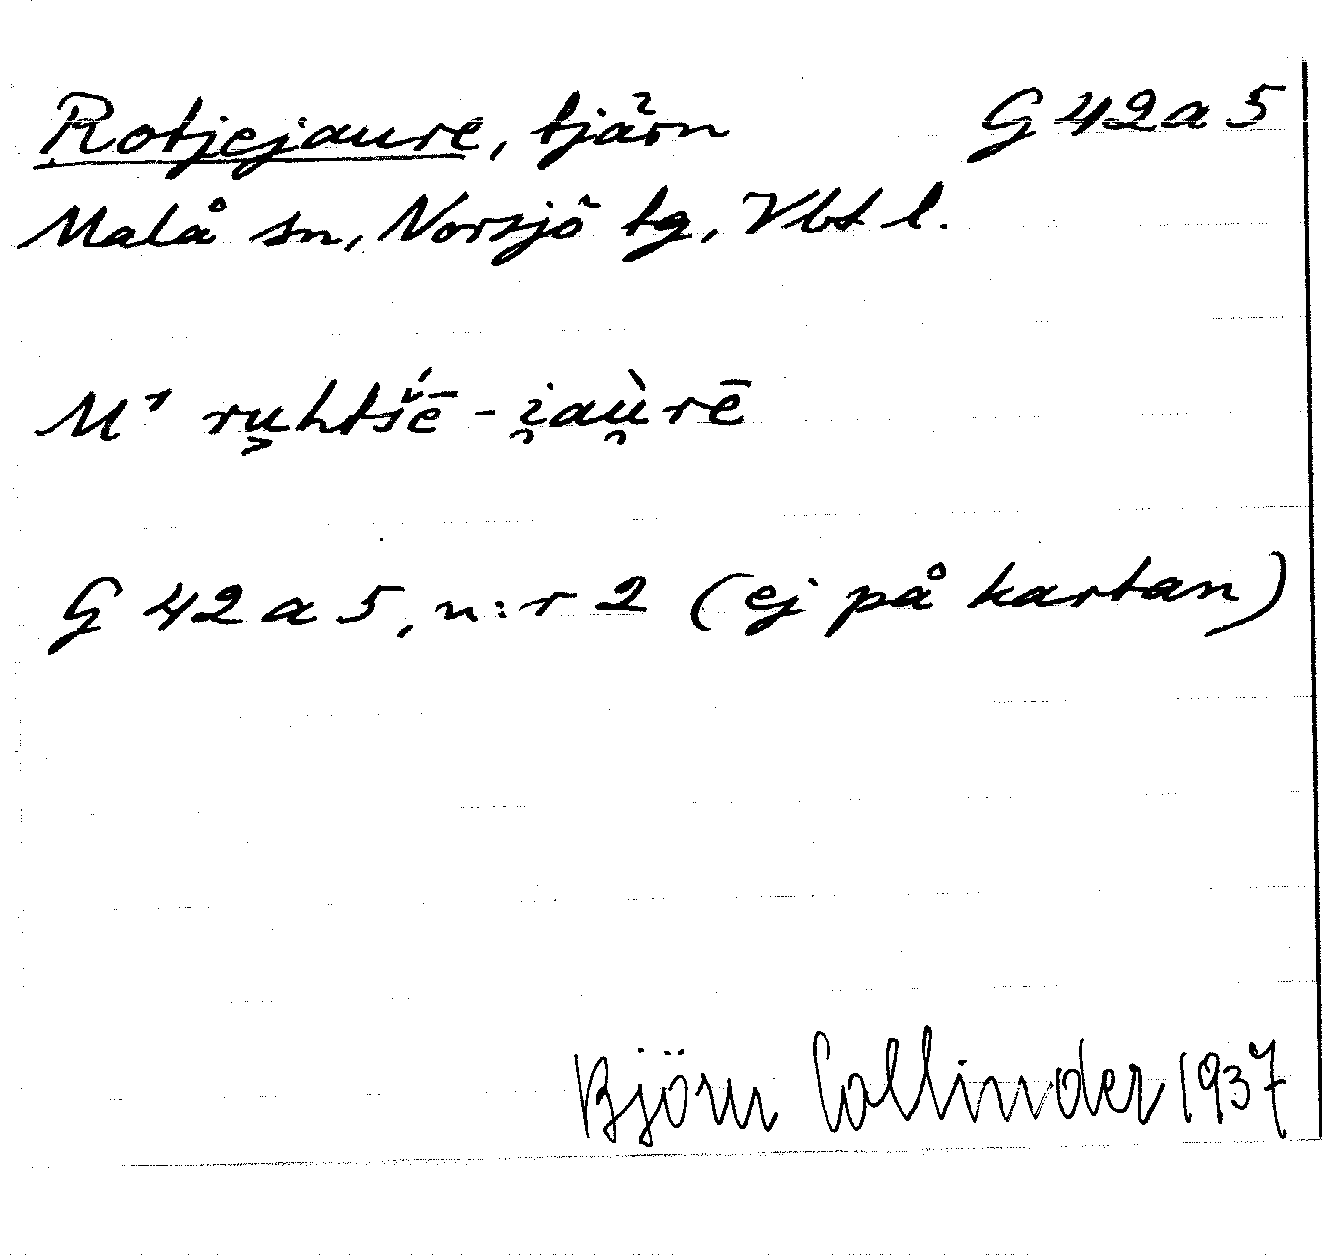 Rotjejaure, tjärn G 42 a 5
Malå sn, Norsjö tg, Vbt l.
M¹ ru̬htš́ē - i̯aù̯rē
G 42 a 5, n:r 2 (ej på kartan)
Björn Collinder 1937